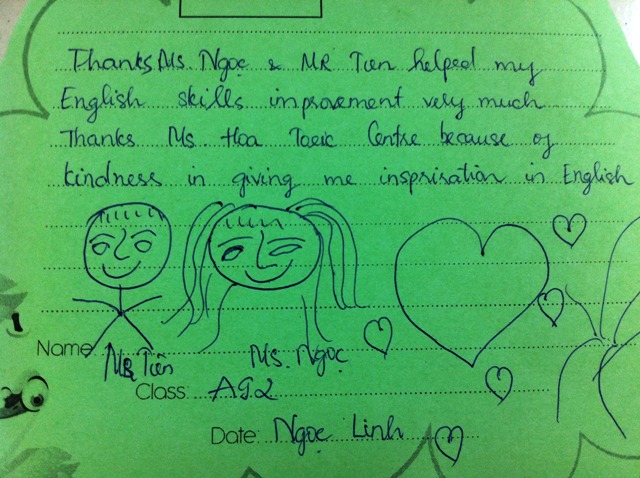 Thanks Ms. Ngọc & MR Tiến helped my
English skills improvement very much
Thanks Ms. Hoa Toeic Centre because of
kindness in giving me insprisation in English
Name: MR Tiến Ms. Ngọc
Class:
Date: Ngọc Linh